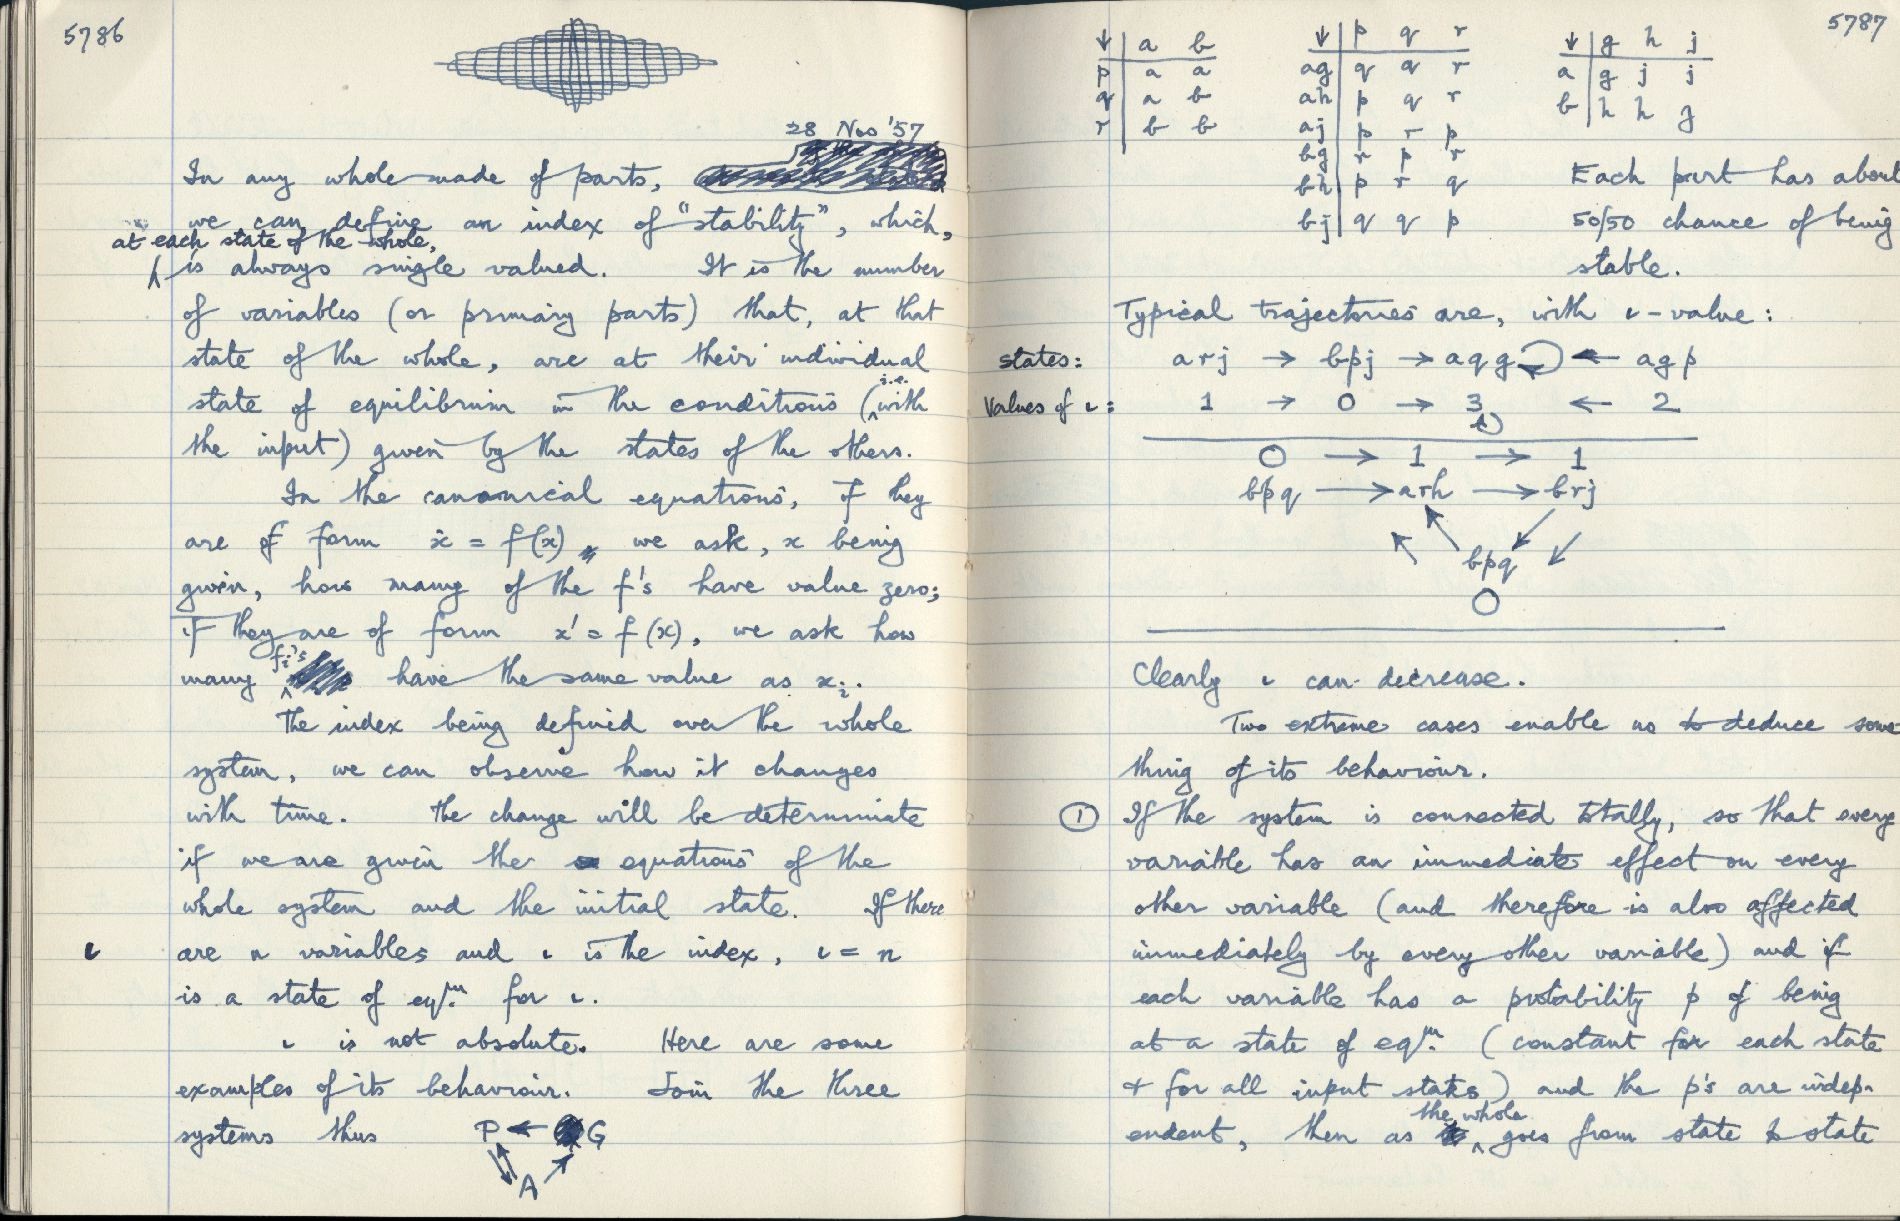 5786
28 Nov '57
In any whole made of parts,
we can define an index of "stability", which,
at each state of the whole,
is always single valued. It is the number
of variables (or primary parts) that, at that
state of the whole, are at their individual
i.e.
state of equilibrium in the conditions (with
the input) given by the states of the others.
In the canonical equations, if they
are of form ẋ = f(x), we ask, x being
given, how many of the f's have value zero;
if they are of form x' = f(x), we ask how
fi's
many have the same value as xi.
The index being defined over the whole
system, we can observe how it changes
with time. The change will be determinate
if we are given the equations of the
whole system and the initial state. If there
ι are n variables and ι is the index, ι = n
is a state of eqᵐ. for ι.
ι is not absolute. Here are some
examples of its behaviour. Join the three
systems thus P ← G
A
5787
↓ a b
p a a
q a b
r b b
↓ p q r
ag q q r
ah p q r
aj p r p
bg r p r
bh p r q
bj q q p
↓ g h j
a g j j
b h h g
Each part has about
50/50 chance of being
stable.
Typical trajectories are, with ι-value:
states: arj → bpj → aqg ← agp
Values of ι: 1 → 0 → 3 ← 2
0 → 1 → 1
bpq → arh → brj
bpq
0
Clearly ι can decrease.
Two extreme cases enable us to deduce some-
thing of its behaviour.
① If the system is connected totally, so that every
variable has an immediate effect on every
other variable (and therefore is also affected
immediately by every other variable) and if
each variable has a probability p of being
at a state of eqᵐ. (constant for each state
+ for all input states) and the p's are indep-
the whole
endent, then as goes from state to state